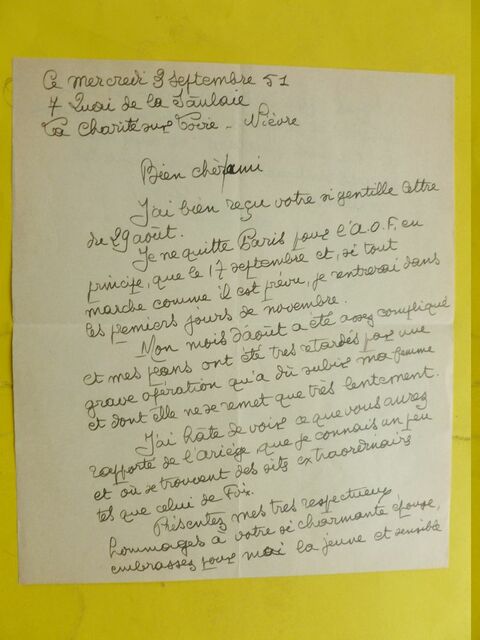 Ce mercredi 3 septembre 51
7 Quai de la Saulaie
La Charité sur Loire - Nièvre
Bien cher ami
J'ai bien reçu votre si gentille lettre
du 29 août.
Je ne quitte Paris pour l'A.O.F, en
principe, que le 17 septembre et, si tout
marche comme il est prévu, je rentrerai dans
les premiers jours de novembre.
Mon mois d'août a été assez compliqué
et mes plans ont été très retardés par une
grave opération qu'a dû subir ma femme
et dont elle ne se remet que très lentement.
J'ai hâte de voir ce que vous aurez
rapporté de l'Ariège, que je connais un peu
et où se trouvent des sites extraordinaires
tels que celui de Foix.
Présentez mes très respectueux
hommages à votre si charmante épouse,
embrassez pour moi la jeune et sensible